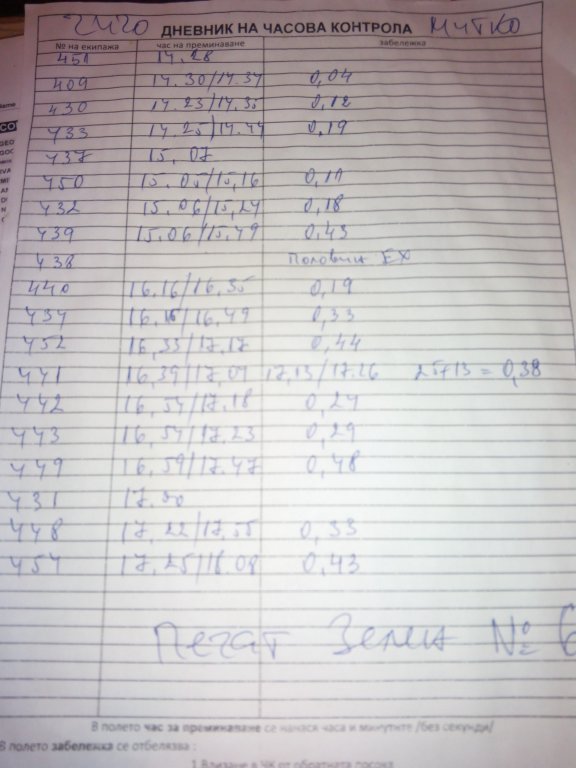 ДНЕВНИК НА ЧАСОВА КОНТРОЛА МИТКО
№ на екипажа час на преминаване забележка
451 14.28
409 14.30/14.34 0,04
430 14.23/14.35 0,12
433 14.25/14.44 0,19
437 15.07
450 15.05/15,16 0,11
432 15.06/15,24 0,18
439 15.06/15,49 0,43
438 Половин EX
440 16.16/16.35 0,19
434 16.16/16,49 0,33
452 16,33/17.17 0,44
441 16,39/17,04 17,13/17.26 25+13 = 0,38
442 16,54/17.18 0,24
443 16,54/17.23 0,29
449 16,59/17.47 0,48
431 17.20
448 17,22/17,55 0,33
454 17,25/18.08 0,43
Печат Зелен № 6
В полето час за преминаване се нанася часа и минутите /без секунди/
В полето забележка се отбелязва :
1.Влизане в ЧК от обратната посока